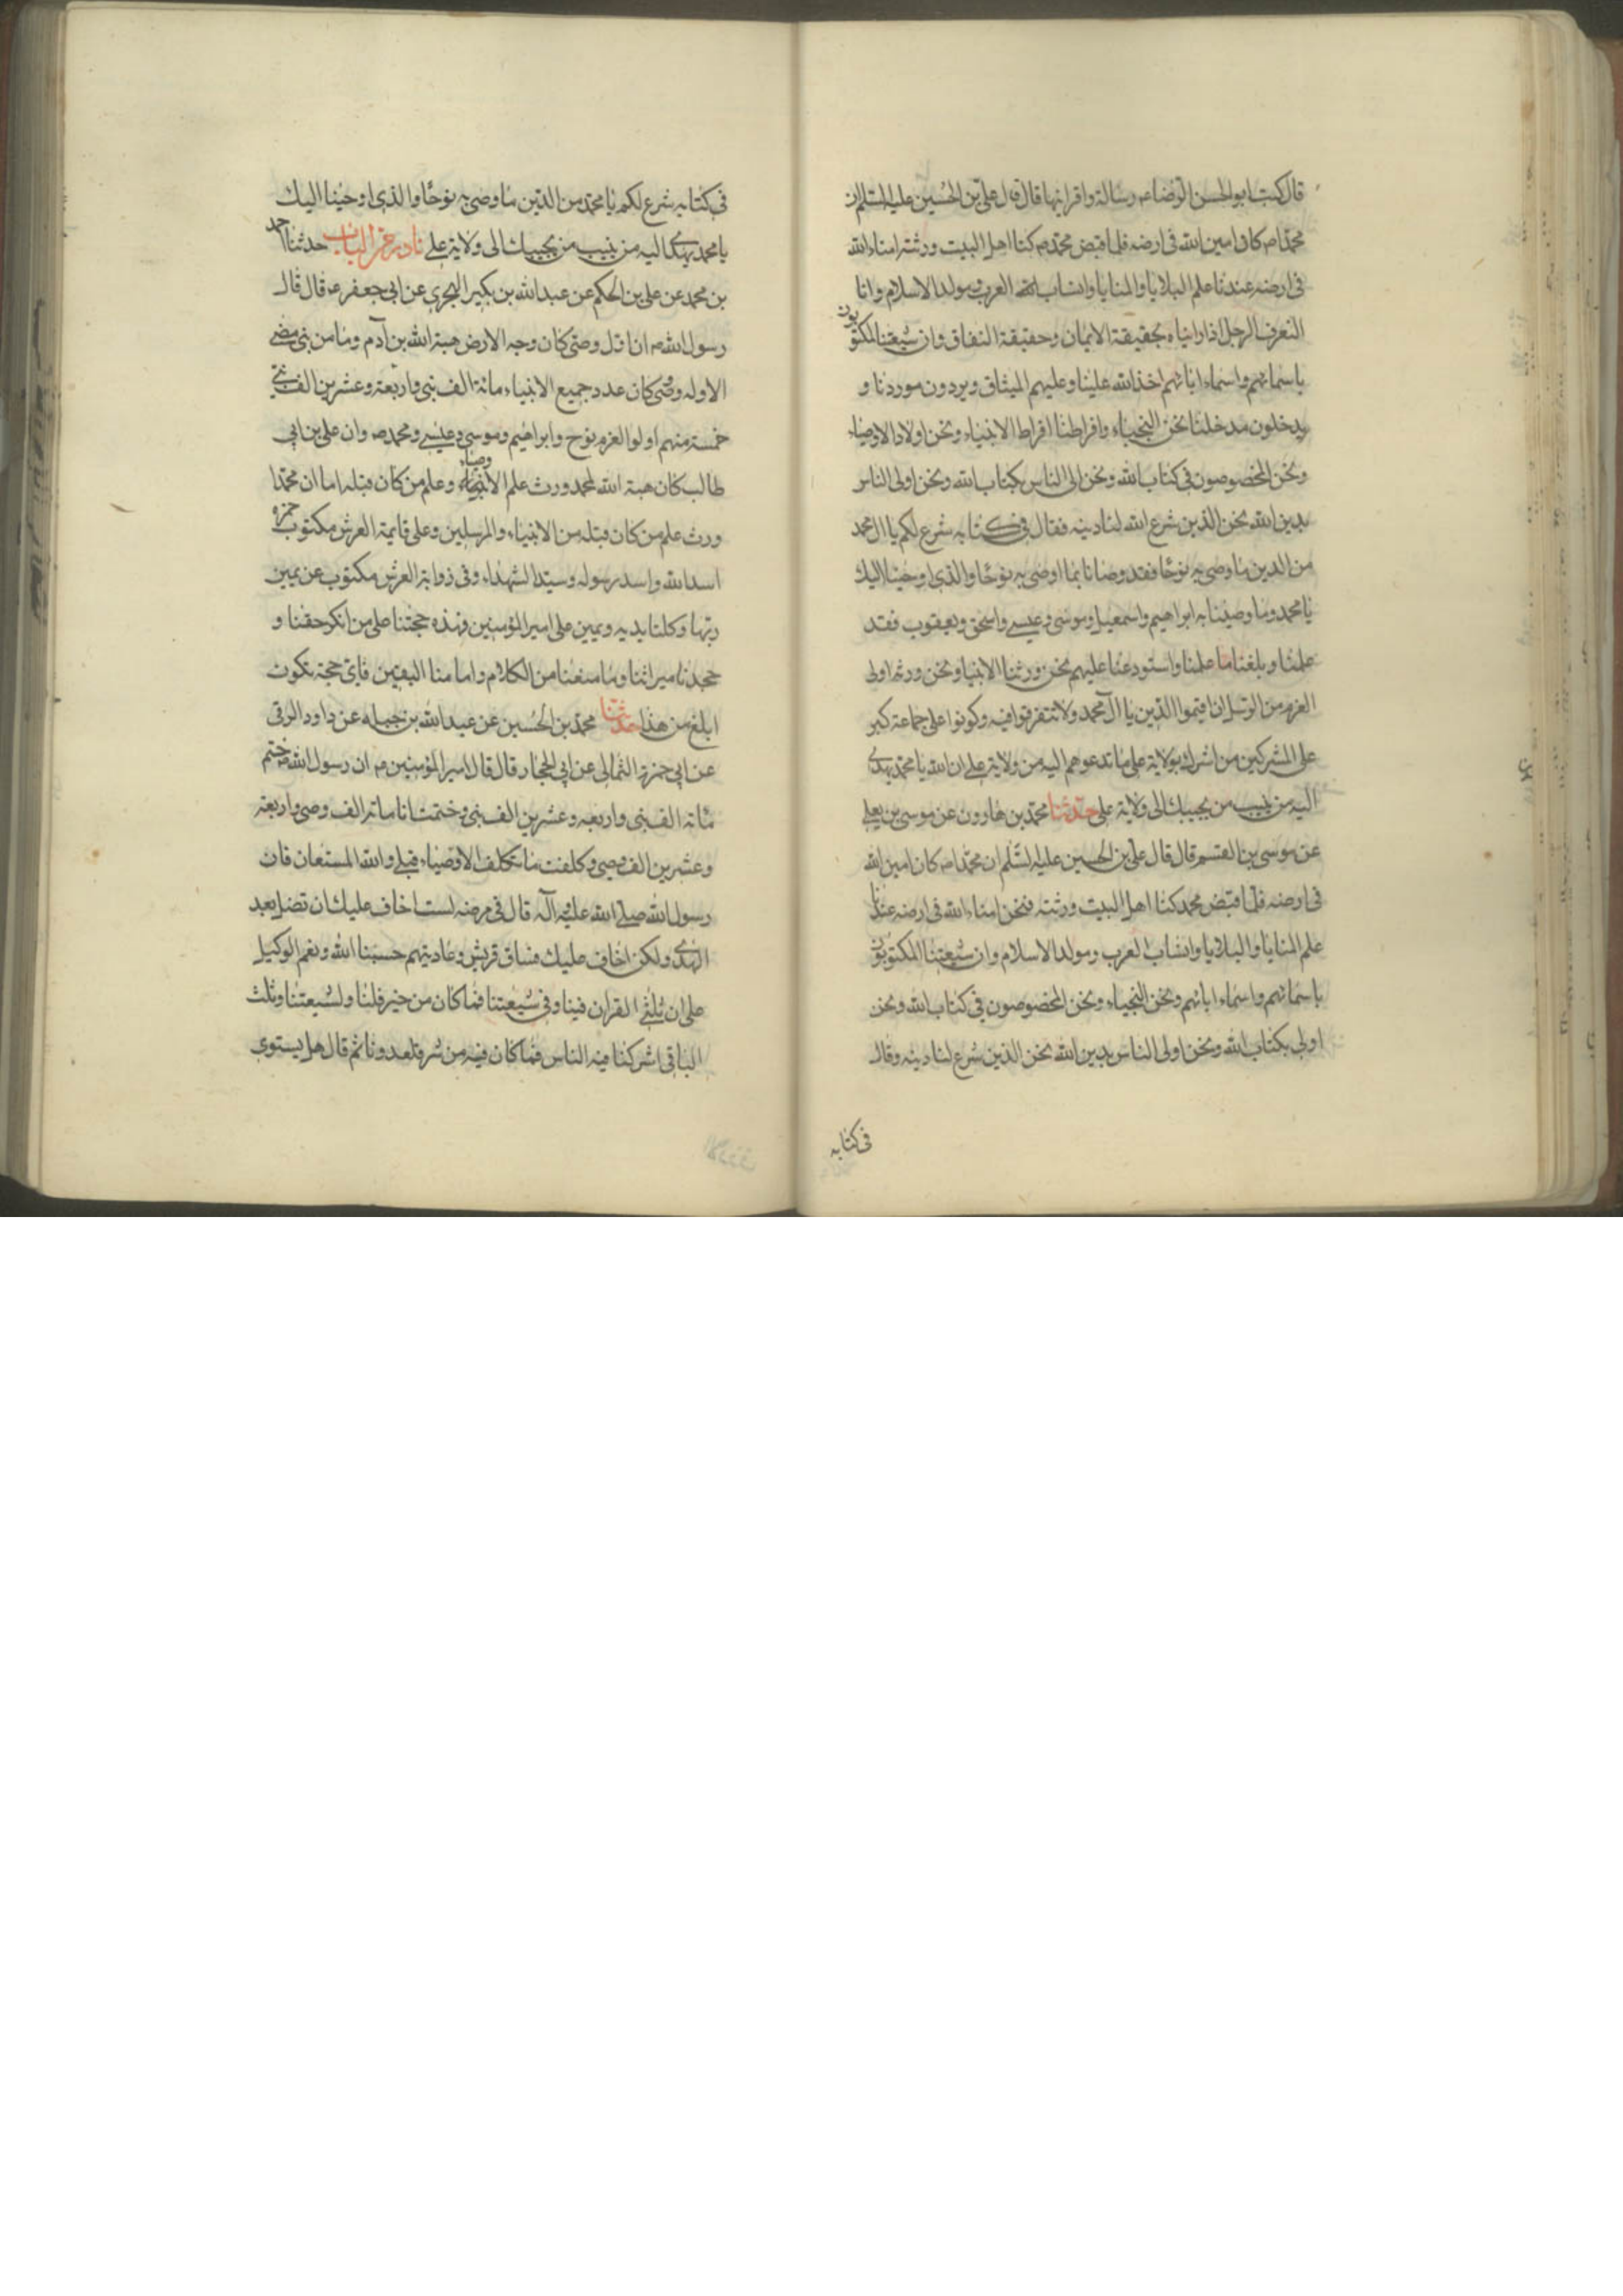 قال كتب ابو الحسن الرضاء رسالة واقرانيها قال قال علي بن الحسين عليه السلام ان
محمدا ص كان امين الله في ارضه فلما قبض محمد ص كنا اهل البيت ورثته امناء الله
في ارضه عندنا علم البلايا والمنايا وانساب العرب ومولد الاسلام وانا
لنعرف الرجل اذا رايناه بحقيقة الايمان وحقيقة النفاق وان شيعتنا لمكتوبون
باسمائهم واسماء ابائهم اخذ الله علينا وعليهم الميثاق ويردون موردنا و
يدخلون مدخلنا نحن النجباء وافراطنا افراط الانبياء ونحن اولاد الاوصياء
ونحن المخصوصون في كتاب الله ونحن الى الناس بكتاب الله ونحن اولى الناس
بدين الله نحن الذين شرع الله لنا دينه فقال في كتابه شرع لكم يا ال محمد
من الدين ما وصى به نوحا فقد وصانا بما اوصى به نوحا والذي اوحينا اليك
يا محمد وما وصينا به ابراهيم واسمعيل وموسى وعيسى واسحق ويعقوب فقد
علمنا وبلغنا ما علمنا واستودعنا علمهم نحن ورثنا الانبيا ونحن ورثه اولى
العزم من الرسل ان اقيموا الدين يا ال محمد ولا تتفرقوا فيه وكونوا على جماعة كبر
على المشركين من اشرك بولاية على ما تدعوهم اليه من ولاية على ان الله يا محمد يهدى
اليه من ينيب من يجيبك الى ولاية على حدثنا محمد بن هارون عن موسى بن يعلى
عن موسى بن القسم قال قال علي بن الحسين عليه السلم ان محمدا ص كان امين الله
في ارضه فلما قبض محمد كنا اهل البيت ورثته فنحن امناء الله في ارضه عندنا
علم المنايا والبلايا وانساب العرب ومولد الاسلام وان شيعتنا المكتوبون
باسمائهم واسماء ابائهم ونحن النجباء ونحن المخصوصون في كتاب الله ونحن
اولى بكتاب الله ونحن اولى الناس بدين الله نحن الذين شرع لنا دينه وقال
في كتابه
في كتابه شرع لكم يا محمد من الدين ما وصى به نوحا والذي اوحينا اليك
يا محمد يهدى اليه من ينيب من يجيبك الى ولاية على نادر من الباب حدثنا احمد
بن محمد عن علي بن الحكم عن عبد الله بن بكير الهجري عن ابي جعفر ع قال قال
رسول الله ص ان اول وصى كان وجه الارض هبة الله بن آدم وما من نبى مضى
الا وله وصى كان عدد جميع الانبياء مائة الف نبى واربعة وعشرين الف نبى
خمسة منهم اولوا العزم نوح وابراهيم وموسى وعيسى ومحمد ص وان على بن ابي
طالب كان هبة الله لمحمد ورث علم الاوصياء وعلم من كان قبله اما ان محمدا
ورث علم من كان قبله من الانبياء والمرسلين وعلى قايمة العرش مكتوب حمزه
اسد الله واسد رسوله وسيد الشهداء وفى ذوابة العرش مكتوب عن يمين
ربها وكلتا يديه ويمين على امير المؤمنين فهذه حجتنا على من انكر حقنا و
جحدنا ميراثنا وما منعنا من الكلام وامامنا اليقين فاى حجة تكون
ابلغ من هذا حدثنا محمد بن الحسين عن عبد الله بن جبله عن داود الرقى
عن ابي حمزة الثمالى عن ابي الحجاز قال قال امير المؤمنين ع ان رسول الله ص ختم
مائة الف نبى واربعه وعشرين الف نبى وختمت انا مائة الف وصى واربعة
وعشرين الف وصى وكلفت ما تكلف الاوصياء قبلى والله المستعان فان
رسول الله صلى الله عليه وآله قال فى مرضه لست اخاف عليك ان تضل بعد
الهدى ولكن اخاف عليك فساق قريش وعاديتهم حسبنا الله ونعم الوكيل
على ان ثلثى القران فينا وفى شيعتنا فما كان من خير فلنا ولشيعتنا وثلث
الباقى اشركنا فيه الناس فما كان فيه من شر فلعدونا ثم قال هل يستوى